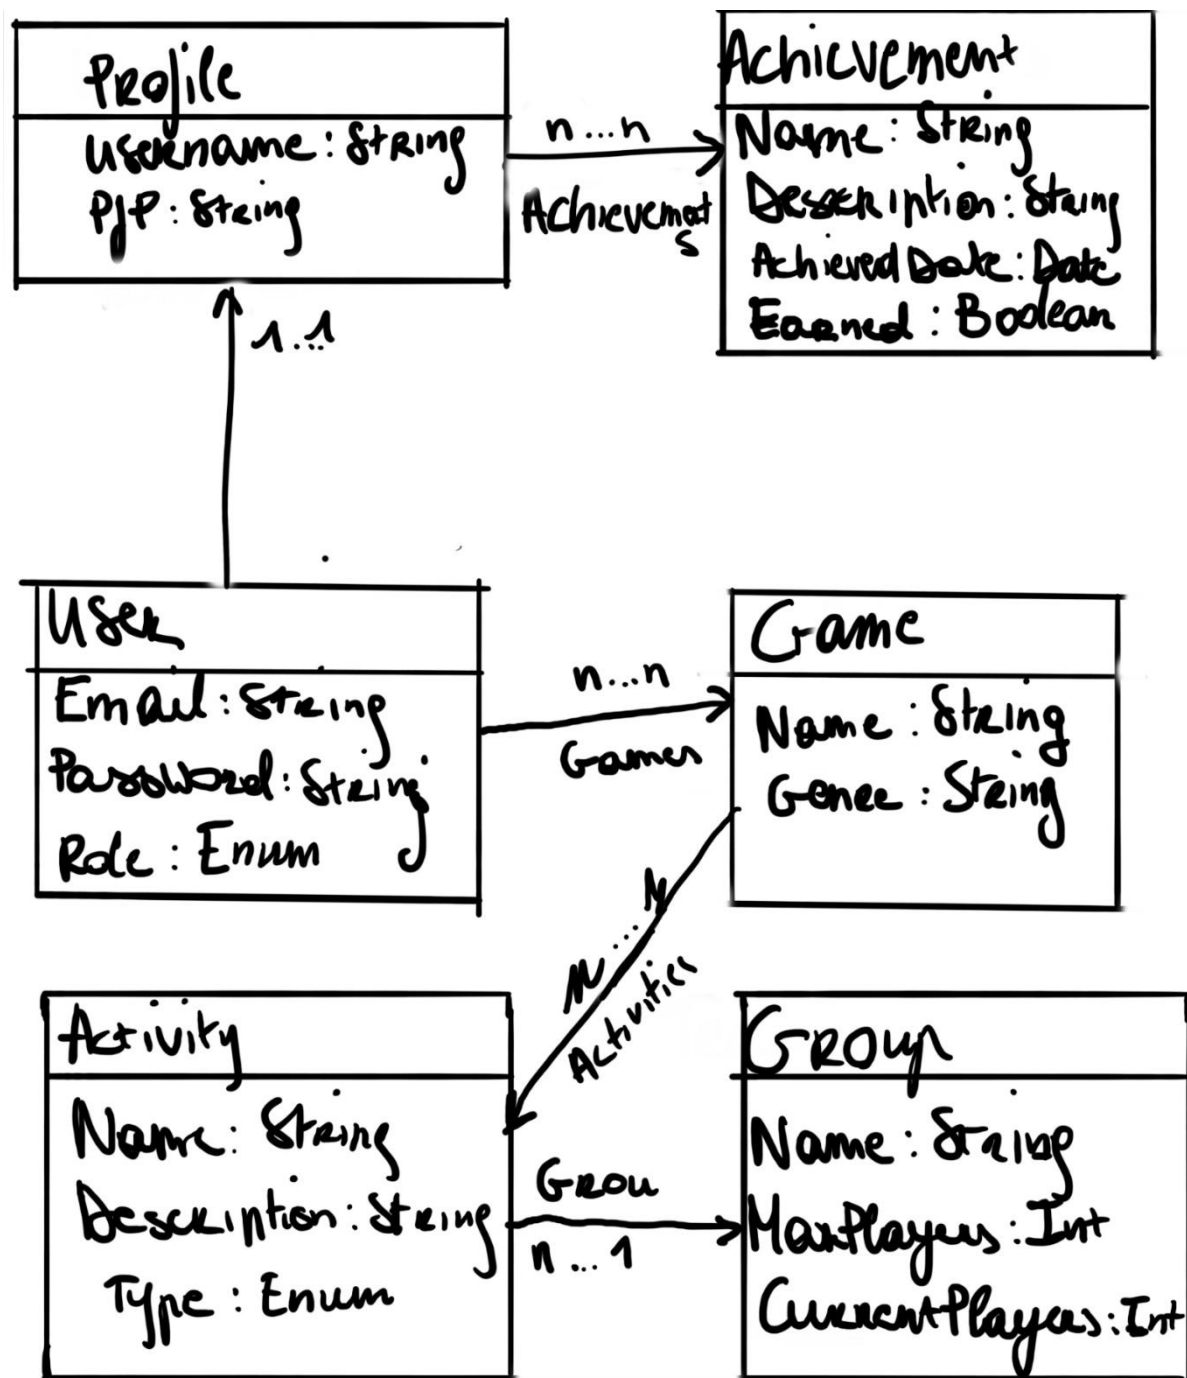 Profile
Username: String
PfP: String
n...n
Achievement
s
Achievement
Name: String
Description: String
AchievedDate: Date
Earned: Boolean
1...1
User
Email: String
Password: String
Role: Enum
n...n
Games
Game
Name: String
Genre: String
N....N
Activities
Activity
Name: String
Description: String
Type: Enum
Grou
n...1
Group
Name: String
MaxPlayers: Int
CurrentPlayers: Int